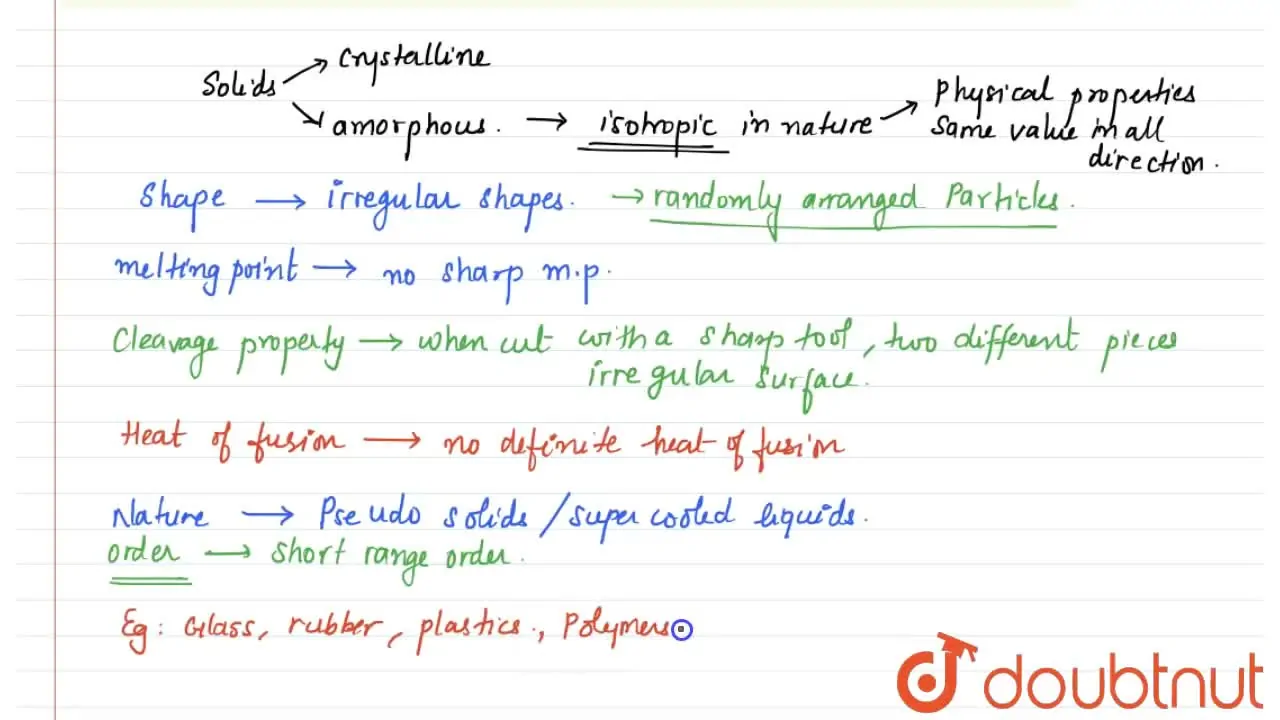 Solids → crystalline
→ amorphous. → isotropic in nature → Physical properties
same value in all
direction.
Shape → irregular shapes. → randomly arranged Particles.
melting point → no sharp m.p.
Cleavage property → when cut with a sharp tool, two different pieces
irregular surface.
Heat of fusion → no definite heat of fusion
Nature → Pseudo solids / super cooled liquids.
order → short range order.
Eg: Glass, rubber, plastics., Polymers
doubtnut